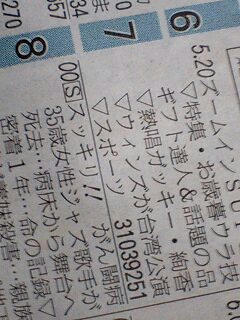 6
5.20ズームインSUP
▽特集・お歳暮ウラ技
ギフト達人&話題の品
▽熱唱ガッキー・絢香
▽ウィンズが台湾公演
▽スポーツ 31039251
7
8
00Sスッキリ!! がん闘病
35歳女性ジャズ歌手が
…病床から舞台へ
密着1年…命の記録▽